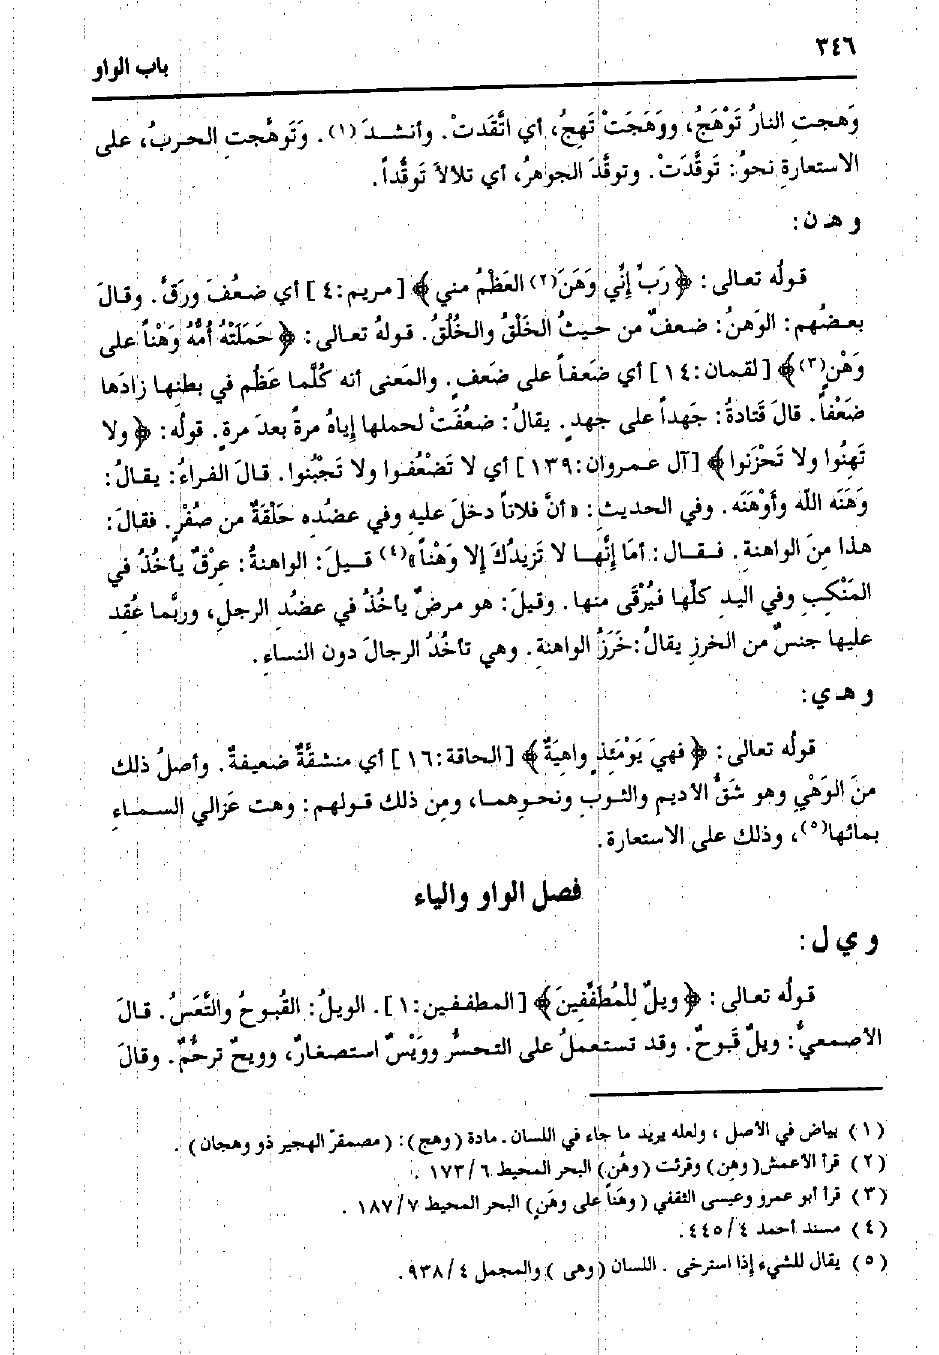 ٣٤٦
باب الواو
وَهجتِ النارُ تَوْهَجُ، ووَهَجَتْ تَهِجُ، أي اتَّقَدتْ. وأنشدَ(١). وَتَوهَّجتِ الحربُ، على
الاستعارةِ نحوُ: تَوقَّدَتْ. وتوقَّدَ الجوهرُ، أي تلألأ تَوقُّداً.
و هـ ن:
قولُه تعالى: ﴿ رَبِّ إنِّي وَهَنَ(٢) العَظْمُ مني ﴾ [مريم:٤] أي ضعُفَ ورَقَّ. وقالَ
بعضُهم: الوَهنُ: ضعفٌ من حيثُ الخَلْقُ والخُلُقُ. قولهُ تعالى: ﴿ حَمَلَتْهُ أُمُّهُ وَهْناً على
وَهْنٍ(٣) ﴾ [لقمان:١٤] أي ضَعفاً على ضَعفٍ. والمَعنى أنه كُلَّما عَظُم في بطنِها زادَها
ضَعْفاً. قالَ قَتادةُ: جَهداً على جهدٍ. يقالُ: ضعُفَتْ لحملها إياهُ مرةً بعدَ مرةٍ. قولُه: ﴿ ولا
تَهِنُوا ولا تَحْزَنوا ﴾ [آل عمروان:١٣٩] أي لا تَضْعُفوا ولا تَجْبُنوا. قالَ الفراءُ: يقالُ:
وَهَنَه اللّه وأَوْهَنَه. وفي الحديثِ: «أنَّ فلاناً دخلَ عليهِ وفي عضُدِه حَلْقَةٌ من صُفْرٍ. فقالَ:
هذا مِنَ الواهنةِ. فقال: أمَا إنَّها لا تَزيدُكَ إلا وَهْناً»(٤) قيلَ: الواهنةُ: عِرْقٌ يأخُذُ في
المَنْكِبِ وفي اليدِ كلِّها فيُرْقَى منها. وقيلَ: هو مرضٌ يأخُذُ في عضُدِ الرجلِ، وربَّما عُقِد
عليها جنسٌ من الخرزِ يقالُ:خَرَزُ الواهنةِ. وهي تأخُذُ الرجالَ دون النساءِ.
و هـ ي:
قولُه تعالى: ﴿ فهيَ يَوْمَئِذٍ واهِيَةٌ ﴾ [الحاقة:١٦] أي منشقَّةٌ ضعيفةٌ. وأصلُ ذلك
منَ الوَهْيِ وهو شَقُّ الأديم والثوبِ ونحوِهما، ومِن ذلك قولهم: وهت عَزالي السماءِ
بمائها(٥)، وذلك على الاستعارة.
فصل الواو والياء
و ي ل:
قولُه تعالى: ﴿ ويلٌ لِلْمُطَفِّفِينَ ﴾ [المطففين:١]. الويلُ: القُبوحُ والتَّعَسُ. قالَ
الأصمعيُّ: ويلٌ قَبوحٌ. وقد تستعملُ على التحسُّرِ ووَيْسٌ استصغارٌ، وويحٌ ترحُّمٌ. وقالَ
(١) بياض في الأصل ؛ ولعله يريد ما جاء في اللسان. مادة (وهج): (مصمقرّ الهجير ذو وهجان).
(٢) قرأ الأعمش(وهِن) وقرئت (وهُن) البحر المحيط ٦/ ١٧٣ .
(٣) قرأ أبو عمرو وعيسى الثقفي (وهَناً على وهَنٍ) البحر المحيط ٧/ ١٨٧ .
(٤) مسند أحمد ٤/ ٤٤٥.
(٥) يقال للشيء إذا استرخى . اللسان (وهى ) والمجمل ٤/ ٩٣٨.